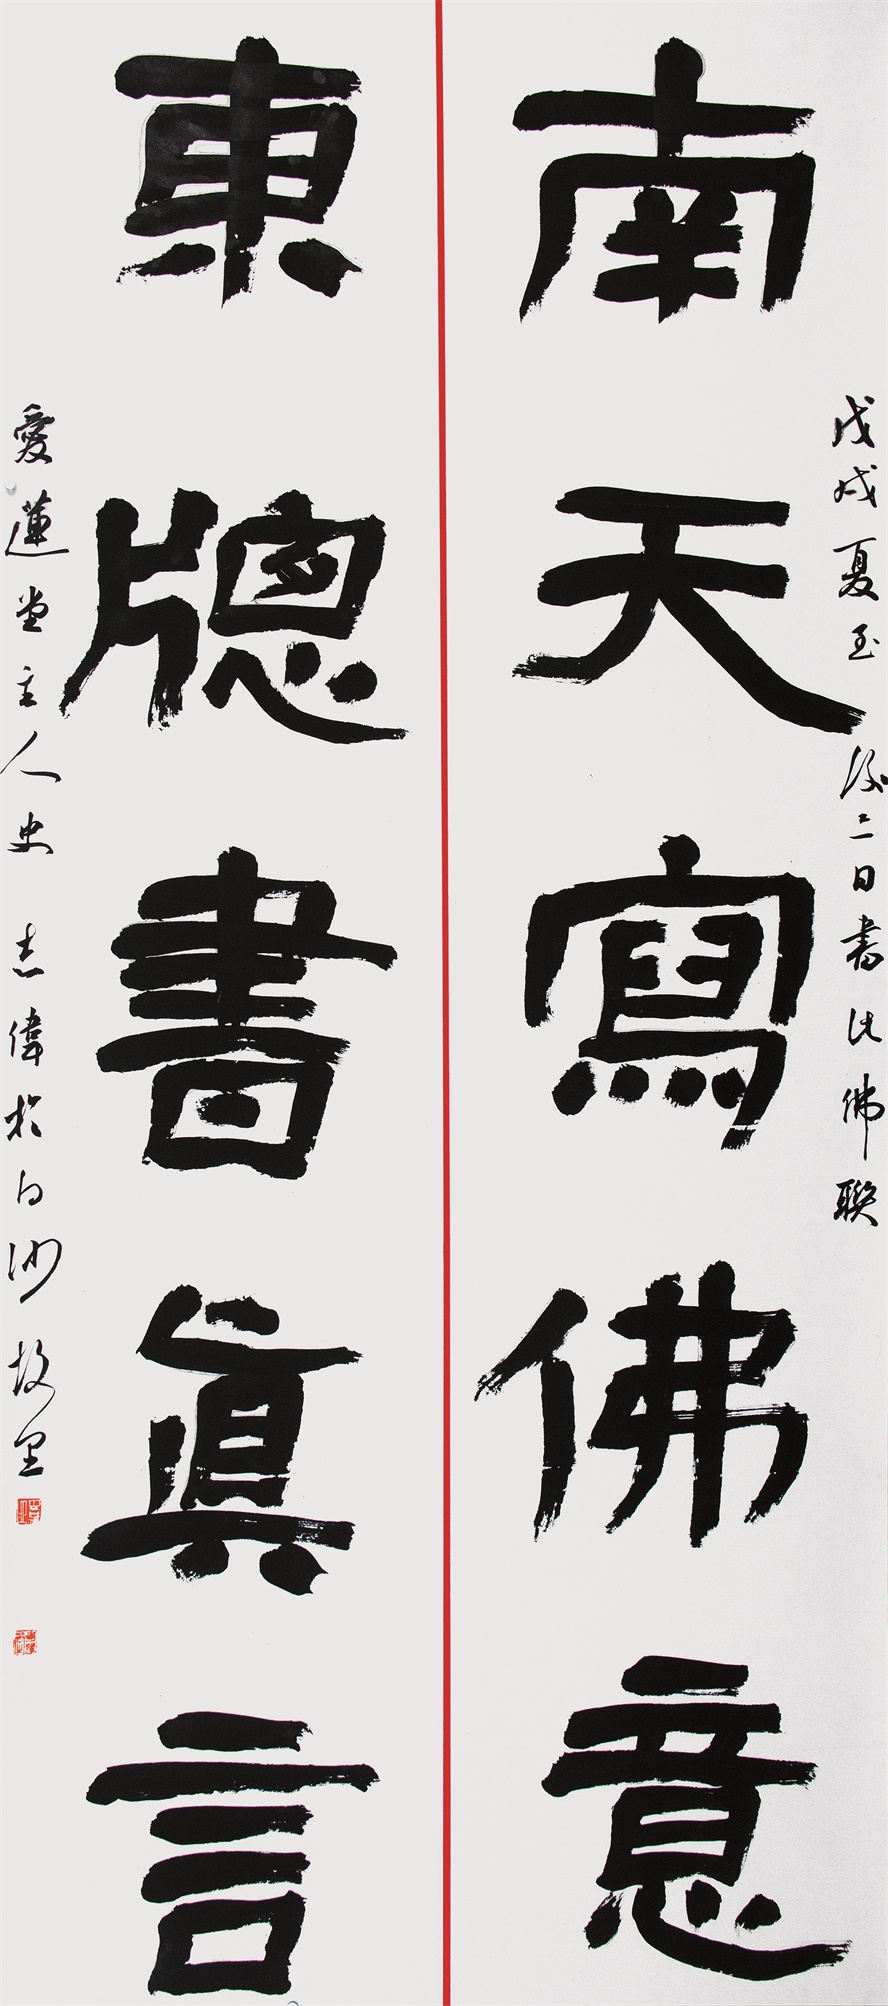 南天寫佛意
戊戌夏至後二日書此佛聯
東牕書真言
愛蓮堂主人史志偉於白沙故里